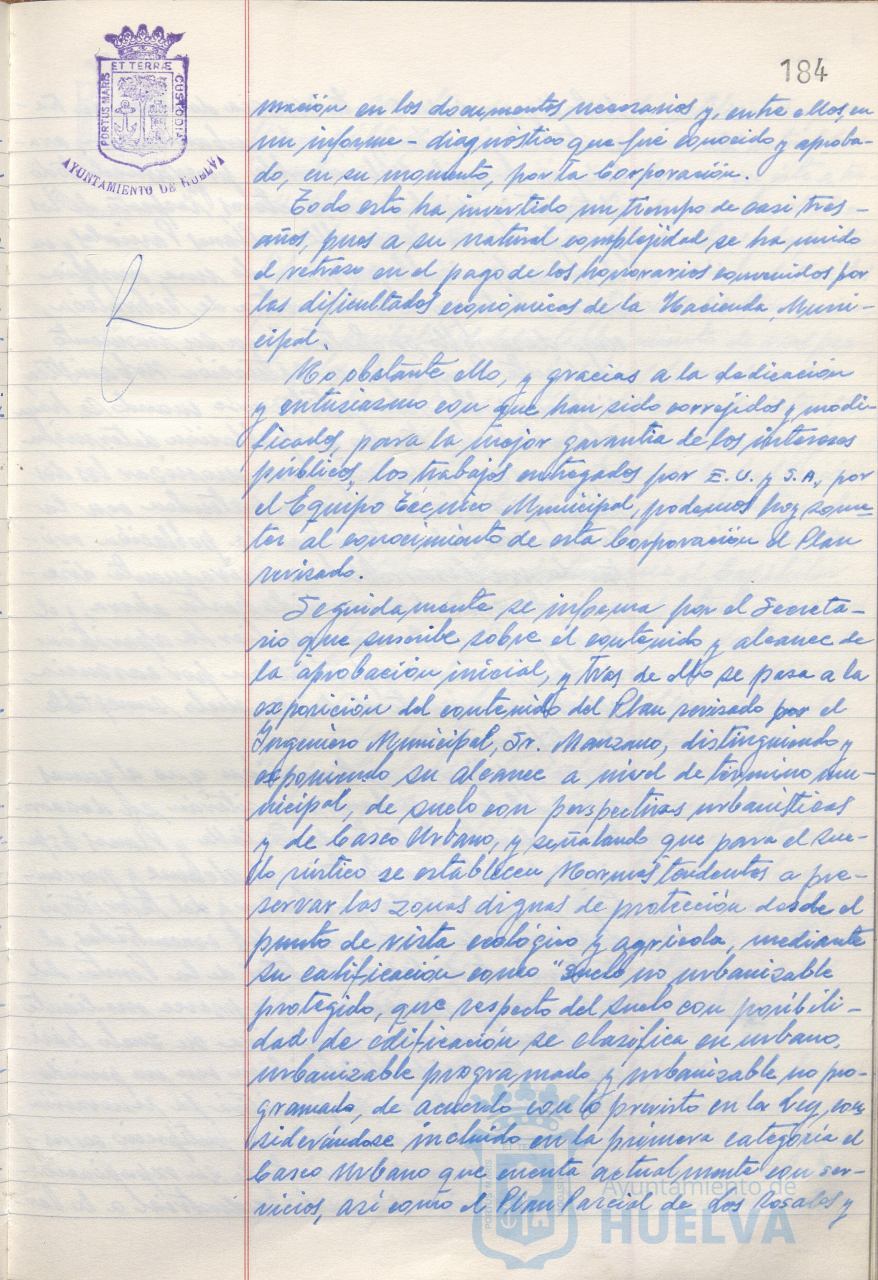 184
PORTUS MARIS ET TERRÆ CUSTODIA
AYUNTAMIENTO DE HUELVA
mación en los documentos necesarios y, entre ellos, en
un informe-diagnóstico que fué conocido y aproba-
do, en su momento, por la Corporación.
Todo esto ha invertido un tiempo de casi tres
años, pues a su natural complejidad se ha unido
el retraso en el pago de los honorarios convenidos por
las dificultades económicas de la Hacienda Muni-
cipal.
No obstante ello, y gracias a la dedicación
y entusiasmo con que han sido corregidos y modi-
ficados, para la mejor garantía de los intereses
públicos, los trabajos entregados por E.U. y S.A., por
el Equipo Técnico Municipal, podemos hoy some-
ter al conocimiento de esta Corporación el Plan
revisado.
Seguidamente se informa por el Secreta-
rio que suscribe sobre el contenido y alcance de
la aprobación inicial, y tras de ello se pasa a la
exposición del contenido del Plan revisado por el
Ingeniero Municipal, Sr. Manzano, distinguiendo y
exponiendo su alcance a nivel de término mu-
nicipal, de suelo con perspectivas urbanísticas
y de Casco Urbano, y señalando que para el sue-
lo rústico se establecen Normas tendentes a pre-
servar las zonas dignas de protección desde el
punto de vista ecológico y agrícola, mediante
su calificación como "suelo no urbanizable
protegido, que respecto del suelo con posibili-
dad de edificación se clasifica en urbano,
urbanizable programado y urbanizable no pro-
gramado, de acuerdo con lo previsto en la Ley, con
siderándose incluído en la primera categoría el
Casco Urbano que cuenta actualmente con ser-
vicios, así como el Plan Parcial de Los Rosales y
Ayuntamiento de
HUELVA